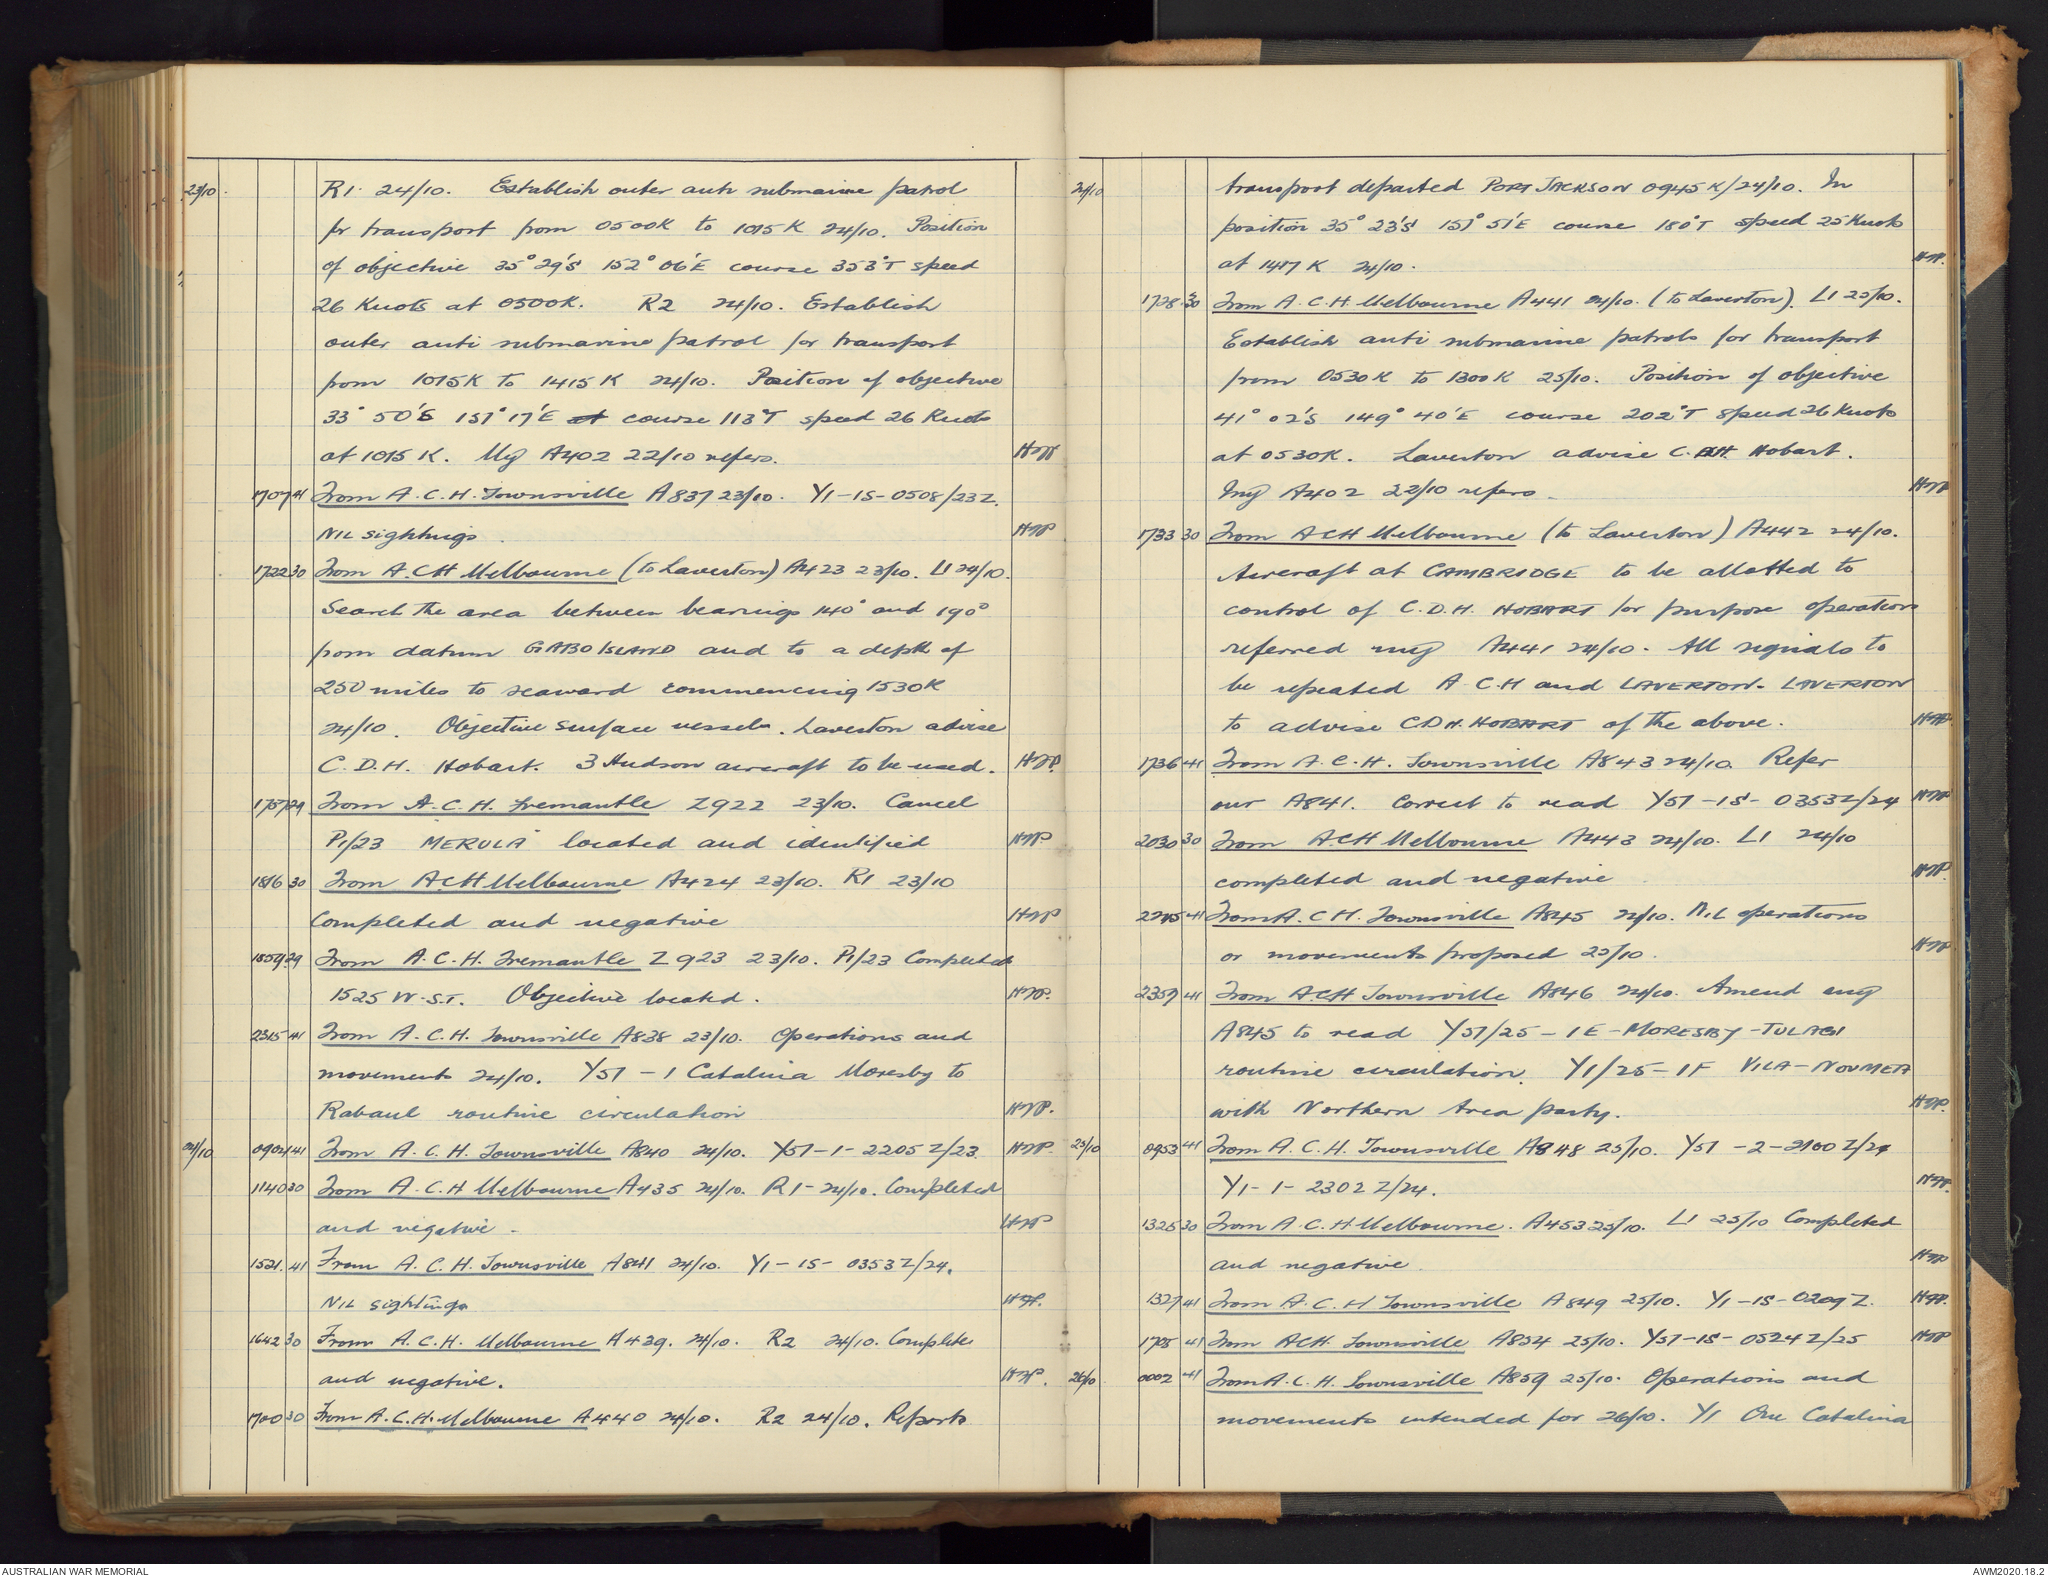 23/10. R1. 24/10. Establish outer anti submarine patrol
for transport from 0500K to 1015K 24/10. Position
of objective 35° 29'S 152° 06'E course 353°T speed
26 Knots at 0500K. R2 24/10. Establish
outer anti submarine patrol for transport
from 1015K to 1415K 24/10. Position of objective
33° 50'S 151° 17'E at course 113°T speed 26 Knots
at 1015 K. My A402 22/10 refers.
1707 41 From A.C.H. Townsville A837 23/10. Y1-1S-0508/23Z.
NIL sightings.
1722 30 From A.C.H Melbourne (to Laverton) A423 23/10. L1 24/10.
Search the area between bearings 140° and 190°
from datum GABO ISLAND and to a depth of
250 miles to seaward commencing 1530K
24/10. Objective surface vessels. Laverton advise
C.D.H. Hobart. 3 Hudson aircraft to be used.
1757 29 From A.C.H. Fremantle Z922 23/10. Cancel
P1/23 "MERULA" located and identified
1816 30 From A.C.H Melbourne A424 23/10. R1 23/10
Completed and negative
1859 29 From A.C.H. Fremantle Z923 23/10. P1/23 Completed
1525 W.S.T. Objective located.
2315 41 From A.C.H. Townsville A838 23/10. Operations and
movements 24/10. Y51-1 Catalina Moresby to
Rabaul routine circulation
24/10 0904 41 From A.C.H. Townsville A840 24/10. Y51-1-2205Z/23.
1140 30 From A.C.H Melbourne A435 24/10. R1-24/10. Completed
and negative.
1521. 41 From A.C.H. Townsville A841 24/10. Y1-1S-0353Z/24.
NIL sightings
1642 30 From A.C.H. Melbourne A439. 24/10. R2 24/10. Complete
and negative.
1700 30 From A.C.H. Melbourne A440 24/10. R2 24/10. Reports
24/10 transport departed PORT JACKSON 0945K/24/10. In
position 35° 23'S 151° 51'E course 180°T speed 25 Knots
at 1417 K 24/10.
1728 30 From A.C.H. Melbourne A441 24/10. (to Laverton). L1 25/10.
Establish anti submarine patrols for transport
from 0530K to 1300K 25/10. Position of objective
41° 02'S 149° 40'E course 202°T speed 26 Knots
at 0530K. Laverton advise C.DH. Hobart.
my A402 22/10 refers.
1733 30 From ACH Melbourne (to Laverton) A442 24/10.
Aircraft at CAMBRIDGE to be allotted to
control of C.D.H. HOBART for purpose operation
referred my A441 24/10. All signals to
be repeated A.C.H and LAVERTON. LAVERTON
to advise CDH. HOBART of the above.
1736 41 From A.C.H. Townsville A843 24/10. Refer
our A841. Correct to read Y51-1S-0353Z/24
2030 30 From A.C.H Melbourne A443 24/10. L1 24/10
completed and negative
2215 41 From A.C.H. Townsville A845 24/10. NIL operations
or movements proposed 25/10.
2359 41 From A.C.H Townsville A846 24/10. Amend my
A845 to read Y51/25-1E-MORESBY-TULAGI
routine circulation. Y1/25-1F VILA-NOUMEA
with Northern Area party.
25/10 0953 41 From A.C.H. Townsville A848 25/10. Y51-2-2100Z/24
Y1-1-2302Z/24.
1325 30 From A.C.H Melbourne. A453 25/10. L1 25/10 Completed
and negative.
1327 41 From A.C.H Townsville A849 25/10. Y1-1S-0209Z.
1705 41 From ACH. Townsville A854 25/10. Y51-1S-0524Z/25
26/10 0002 41 From A.C.H. Townsville A859 25/10. Operations and
movements intended for 26/10. Y1 One Catalina
AUSTRALIAN WAR MEMORIAL
AWM2020.18.2